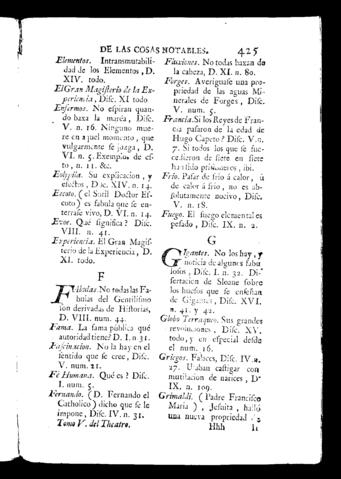 DE LAS COSAS NOTABLES. 425
Elementos. Intransmutabili-
dad de los Elementos, D.
XIV. todo.
El Gran Magisterio de la Ex-
periencia, Disc. XI todo
Enfermos. No espiran quan-
do baxa la maréa, Disc.
V. n. 16. Ninguno mue-
re en aquel momento, que
vulgarmente se juzga, D.
VI. n. 5. Exemplos de es-
to, n. 11. &c.
Su explicacion, y
efectos, Disc. XIV. n. 14.
Escoto. ( el Sutil Doctor Es-
coto) es fabula que se en-
terrase vivo, D. VI. n. 14.
Evor. Qué significa? Disc.
VIII. n. 41.
Experiencia. El Gran Magis-
terio de la Experiencia, D.
XI. todo.
F
Fábulas. No todas las Fa-
bulas del Gentilismo
son derivadas de Historias,
D. VIII. num. 44.
Fama. La fama pública qué
autoridad tiene? D. I. n. 31.
Fascinacion. No la hay en el
sentido que se cree, Disc.
V. num. 21.
Fé Humana. Qué es? Disc.
I. num. 5.
Fernando. ( D. Fernando el
Catholico ) dicho que se le
impone, Disc. IV. n. 31.
Tomo V. del Theatro.
Fluxiones. No todas baxan de
la cabeza, D. XI. n. 80.
Forges. Averiguase una pro-
piedad de las aguas Mi-
nerales de Forges, Disc.
V. num. 5.
Francia. Si los Reyes de Fran-
cia pasaron de la edad de
Hugo Capeto? Disc. V. n.
7. Si todos los que se fu-
cedieron de siete en siete
han sido prisioneros, ibi.
Frio. Pasar de frio á calor, ú
de calor á frio, no es ab-
solutamente nocivo, Disc.
V. n. 18.
Fuego. El fuego elemental es
pesado, Disc. IX. n. 2.
G
Gigantes. No los hay, y
noticia de algunos fabu
losos, Disc. I. n. 32. Di-
sertacion de Sloane sobre
los huesos que se enseñan
de Gigantes, Disc. XVI.
n. 41. y 42.
Globo Terraqueo. Sus grandes
revoluciones, Disc. XV.
todo, y en especial desde
el num. 16.
Griegos. Falaces, Disc. IV. n.
27. Usaban castigar con
mutilacion de narices, D.
IX. n. 109.
Grimaldi. ( Padre Francisco
Maria ) , Jesuita, halló
una nueva propiedad
Hhh